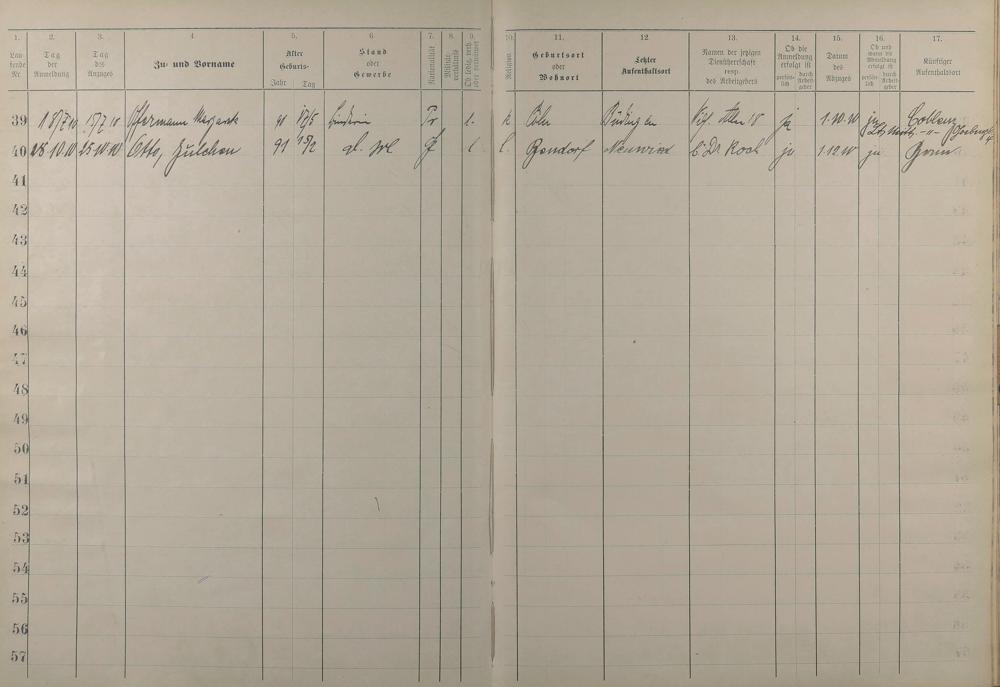 1. 2. 3. 4. 5. 6. 7. 8. 9. 10. 11. 12. 13. 14. 15. 16. 17.
Lau-
fende
Nr.
Tag
der
Anmeldung
Tag
des
Anzuges
Zu- und Vorname
Alter
Geburts-
Jahr Tag
Stand
oder
Gewerbe
Nationalität
Militär-
verhältnis
Ob ledig, verh.
oder verwitwet
Religion
Geburtsort
oder
Wohnort
Letzter
Aufenthaltsort
Namen der jetzigen
Dienstherrschaft
resp.
des Arbeitgebers
Ob die
Anmeldung
erfolgt ist
persön-
lich
durch
Arbeit
geber
Datum
des
Abzuges
Ob und
wann die
Abmeldung
erfolgt ist
persön-
lich
durch
Arbeit-
geber
Künftiger
Aufenthaltsort
39 Margarete 91 Pr l. k Cöln Büdingen ja 1.10.10 ja Coblenz
40 28.10.10 25.10.10 Otto, Julchen 91 Pr l Bendorf Neuwied Dr Koch ja 1.12.10 ja Bonn
41
42
43
44
45
46
47
48
49
50
51
52
53
54
55
56
57